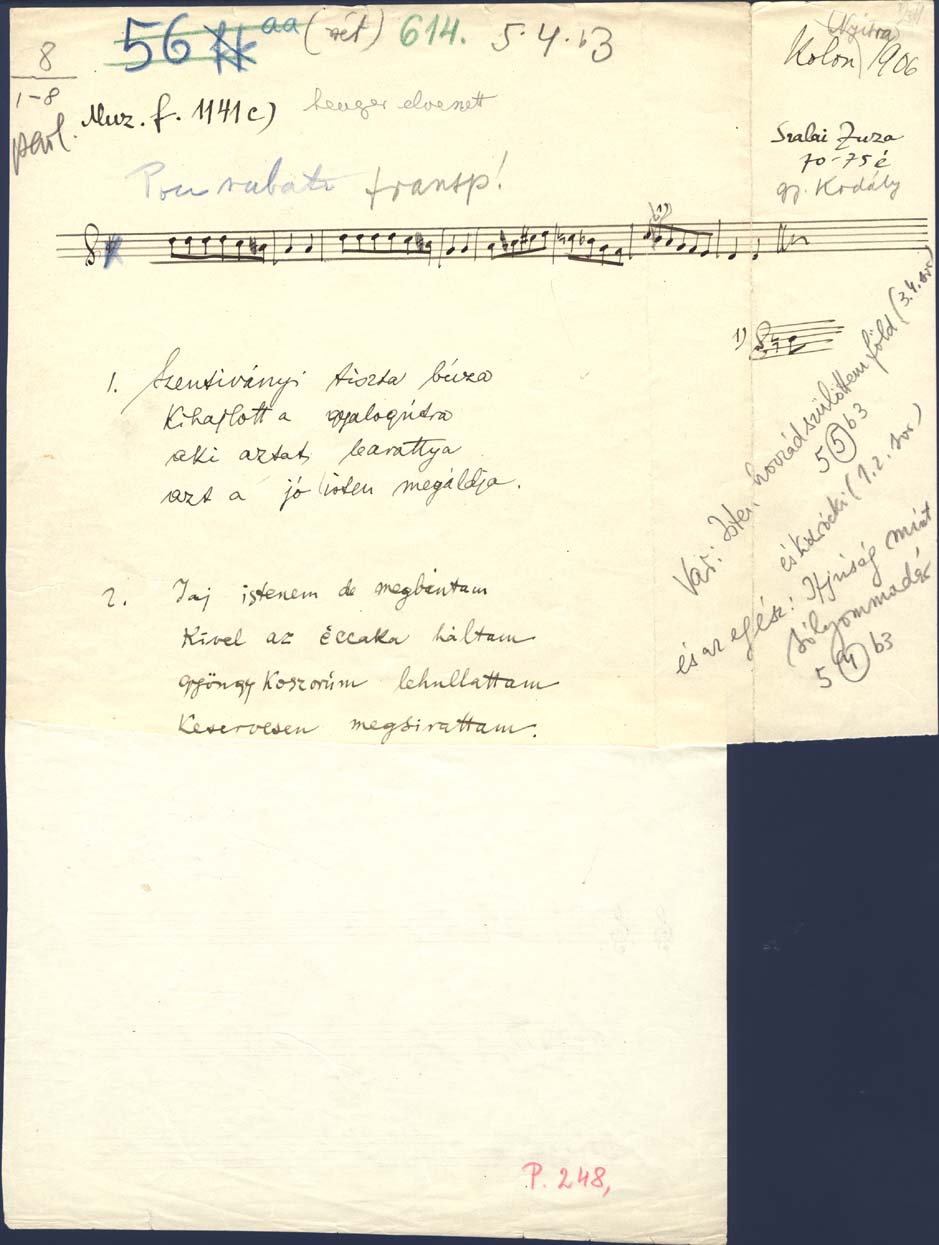 56 aa (rét) 614. 5·4·b3
8
1-8
Muz. f. 1141c) henger elveszett
parl.
(Nyitra)
Kolon 1906
Szalai Zuza
70-75 é
gy. Kodály
Poco rubato transp!
1)
1)
1. Szentiványi tiszta búza
Kihajlott a gyalogútra
aki aztat learattya
azt a jó isten megáldja.
2. Jaj istenem de megbántam
Kivel az éccaka háltam
gyöngy Koszorúm lehullattam
Keservesen megsirattam.
Var: Isten hozzád szülöttem föld (3.4. sor)
5 5 b3
és (1.2. sor)
és az egész: Ifjúság mint sólyommadár
5 4 b3
P. 248,